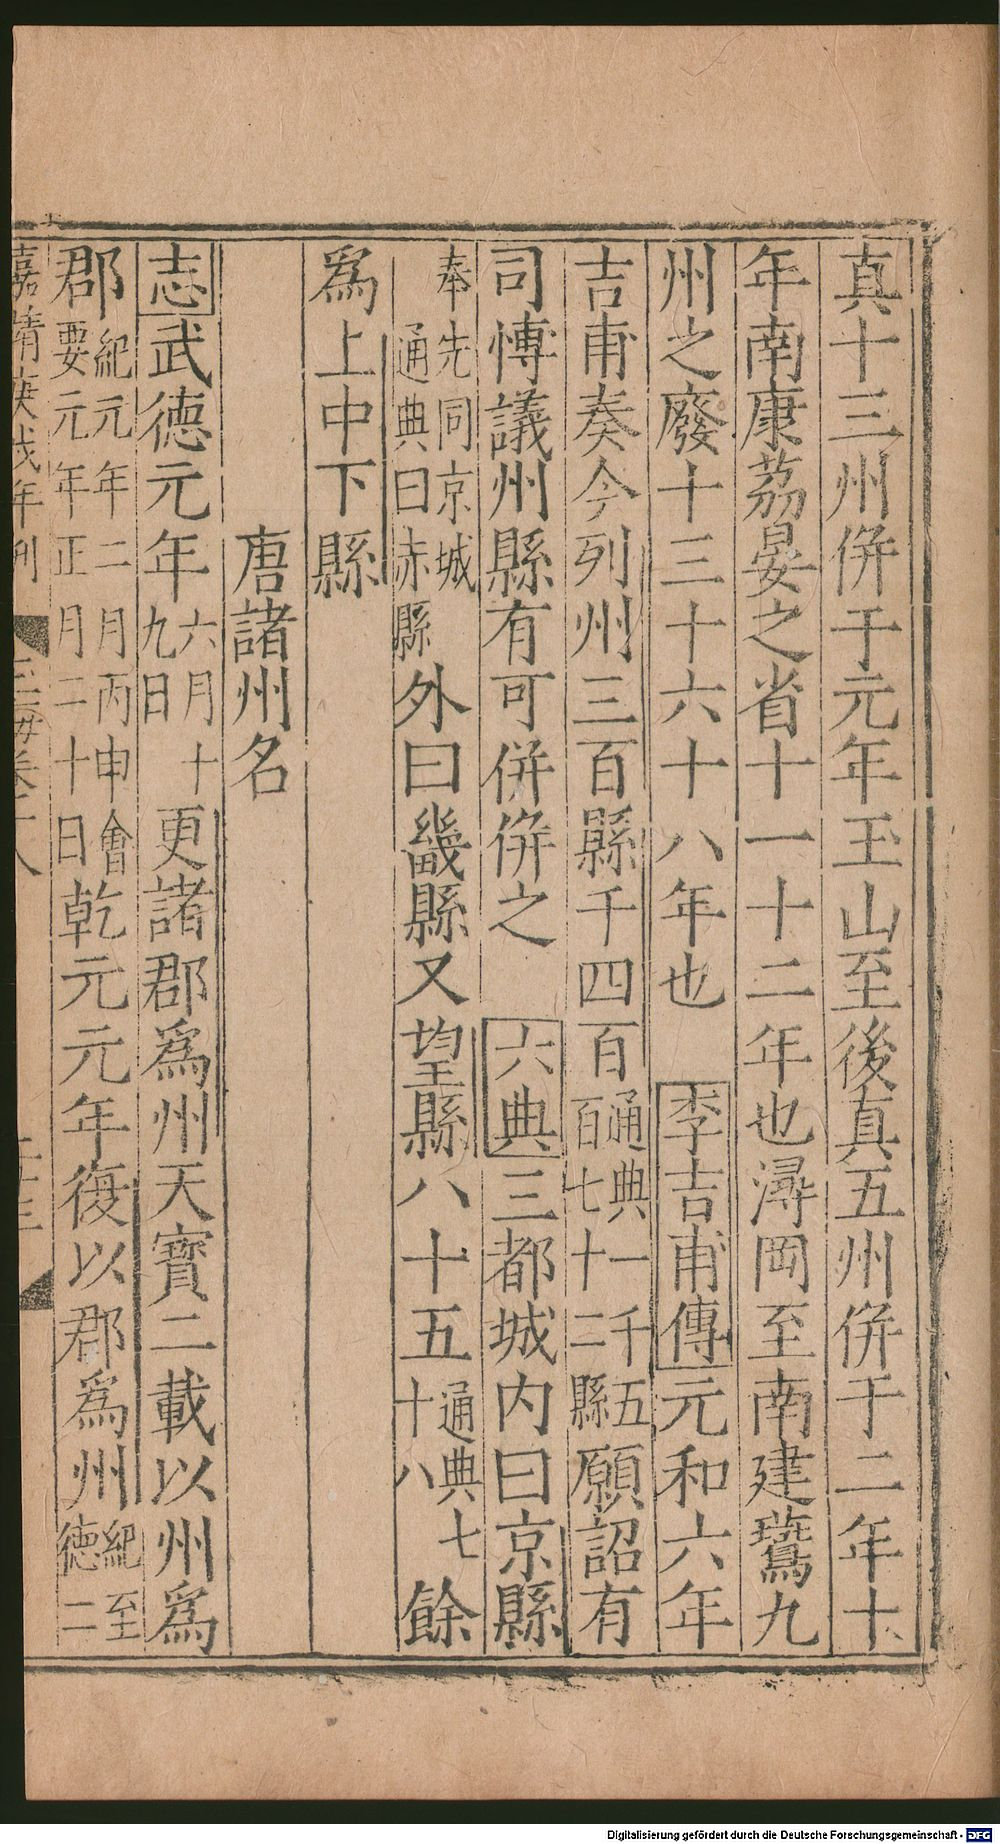 真十三州併于元年玉山至後真五州併于二年十
年南康茘晏之省十一十二年也潯岡至南建鷟九
州之廢十三十六十八年也 李吉甫傳元和六年
吉甫奏今列州三百縣千四百通典一千五百七十二縣願詔有
司博議州縣有可併併之 六典三都城内曰京縣
奉先同京城通典曰赤縣外曰畿縣又望縣八十五通典七十八餘
為上中下縣
唐諸州名
志武徳元年六月十九日更諸郡為州天寳二載以州為
郡紀元年二月丙申會要元年正月二十日乾元元年復以郡為州紀至徳二
嘉靖庚戌年刊
玉海卷十八
Digitalisierung gefördert durch die Deutsche Forschungsgemeinschaft - DFG